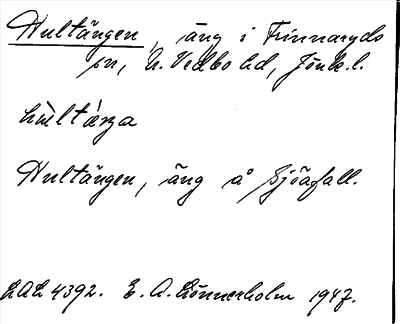 Hultängen, äng i Finnaryds
sn, N. Vedbo hd, Jönk. l.
Hultängen, äng å Sjöafall.
LAL 4392. E. A. Lönnerholm 1947.